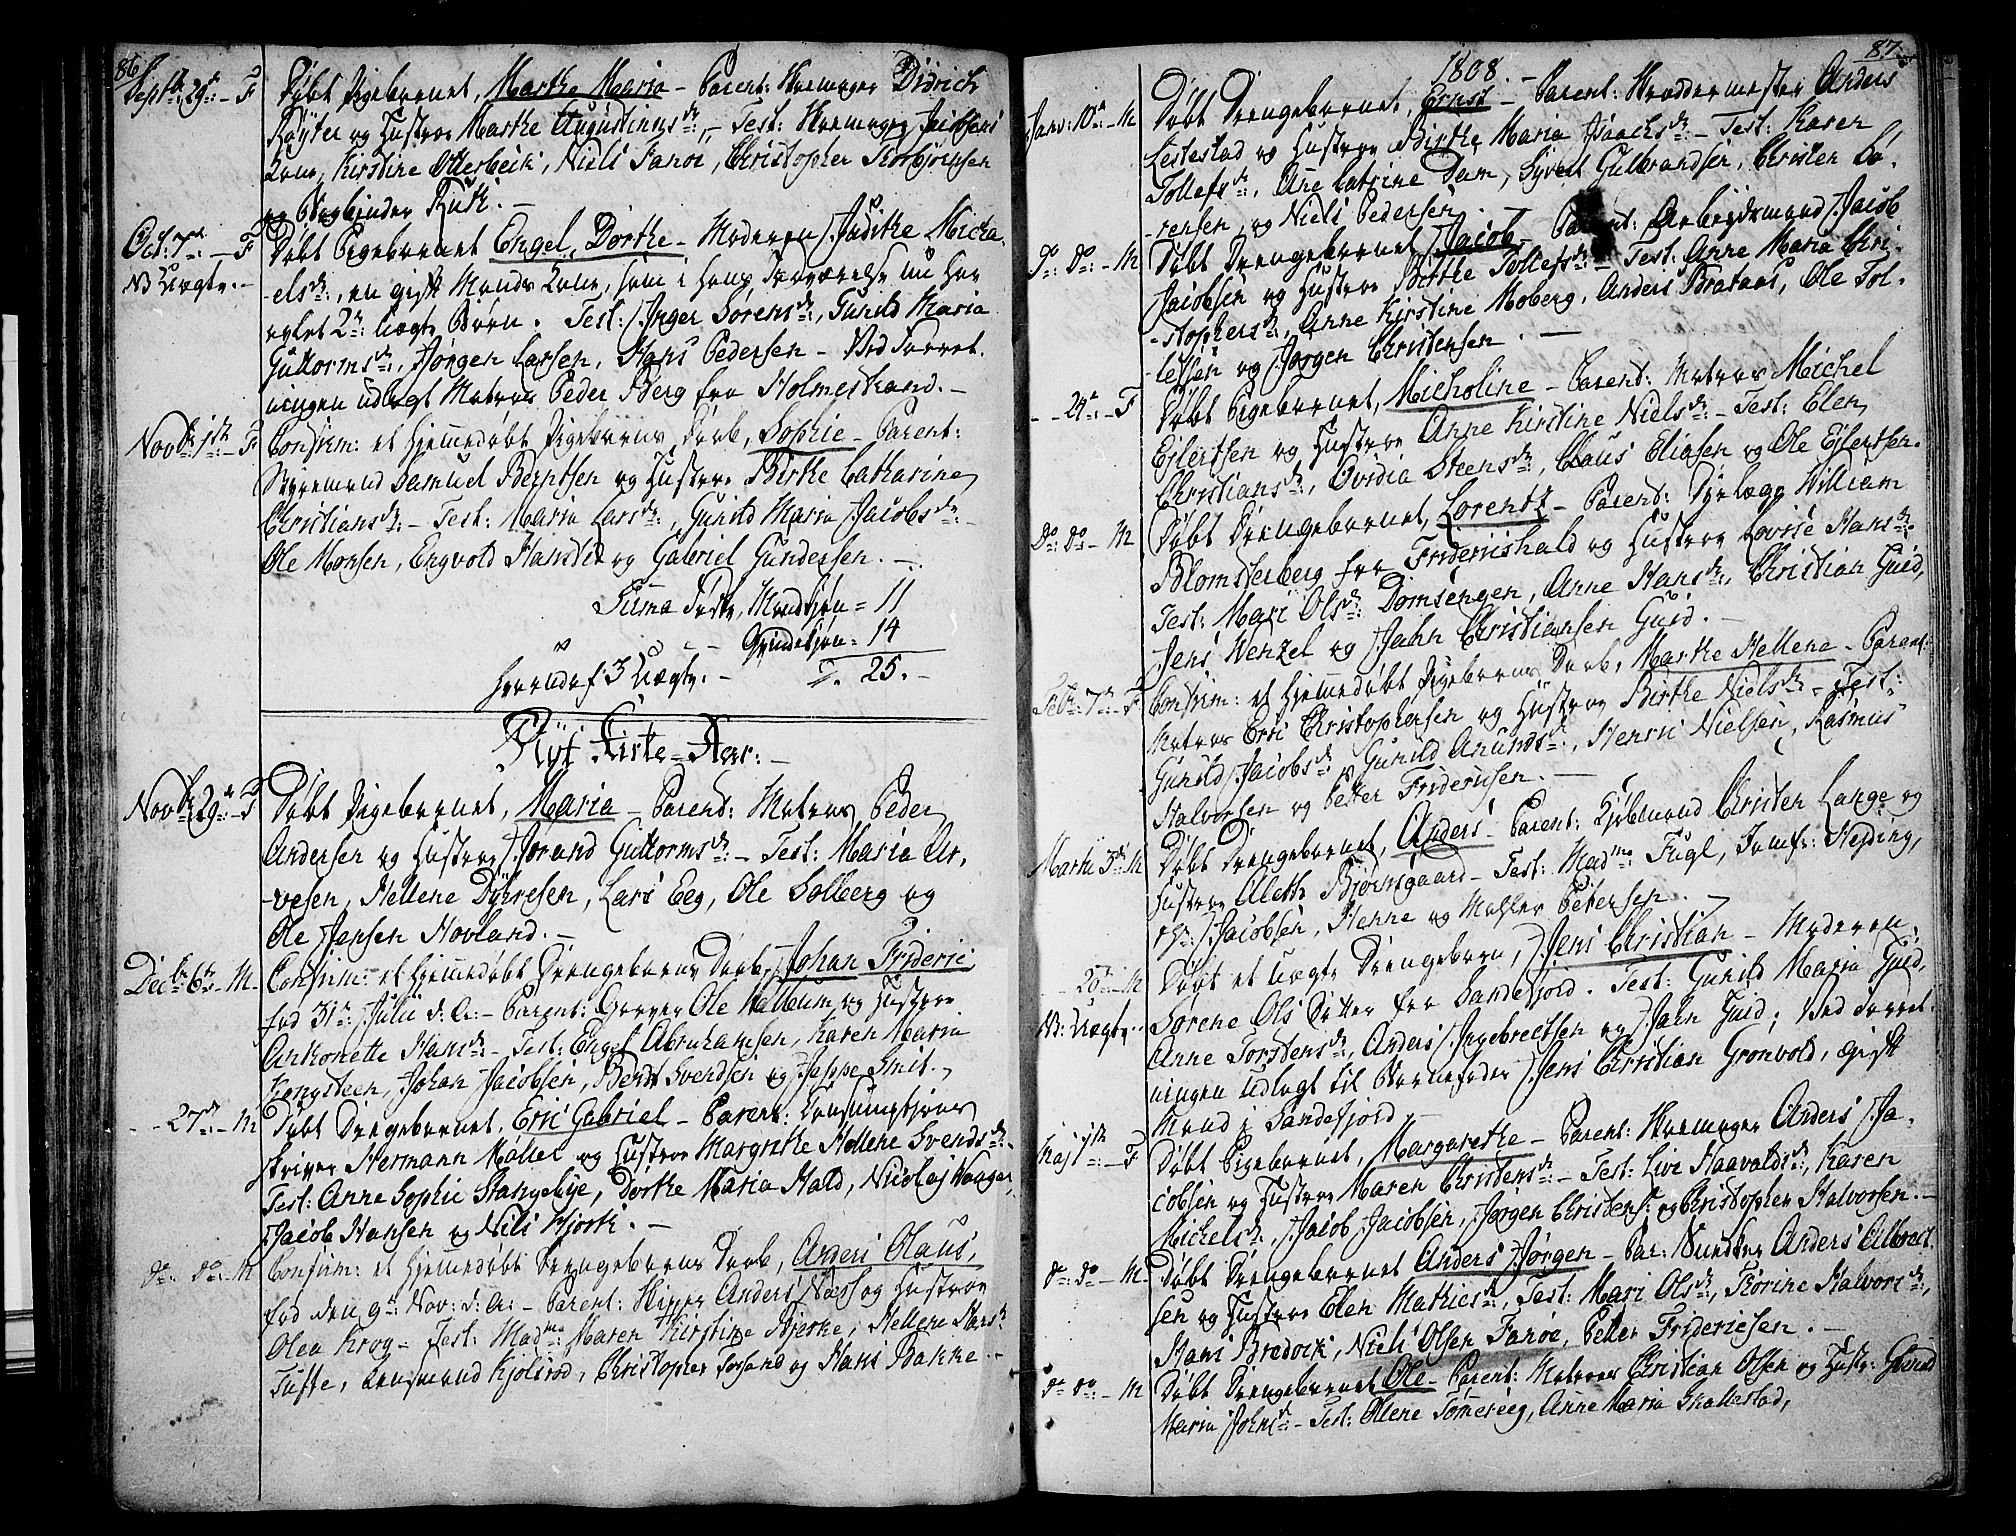 86
Septb: 29de: – F
Döbt Pigebarnet, Marthe Maria – Parent: Skomager Didrich
Röyter og Hustroe Marthe Augustinusdr:, – Test: Skomager Jacobsens
Kone, Kirstine Otterbeck, Niels Fanöe, Christopher Torbjörnsen
og Bogbinder Ruth. –
Oct: 7de: – F
NB Uægte. –
Döbt Pigebarnet Engel Dorthe – Moderen Judithe Micha-
elsdr:, en gift Mands Kone, som i hans Fraværelse nu har
avlet 2de uægte Börn. Test: Inger Sörensdr:, Gunild Maria
Guttormsdr:, Jörgen Larsen, Hans Pedersen – Ved Forret-
ningen udlagt Matros Peder Berg fra Holmestrand. –
Novbr: 1ste: – F
Confirm: et hjemmedöbt Pigebarns Daab, Sophie – Parent:
Styremand Samuel Berntsen og Hustroe Birthe Catharine
Christiansdr: – Test: Maria Larsdr:, Gunild Maria Jacobsdr: –
Ole Monsen, Engvold Hansen og Gabriel Gundersen. –
Suma Födte, Mandkjön = 11
" – – Qvindekjön = 14
hvoraf 3 Uægte. – S. 25. –
Nyt Kirke-Aar: –
Novbr: 29de: – F
Döbt Pigebarnet, Maria – Parent: Matros Peder
Andersen og Hustroe Jorand Guttormsdr: – Test: Maria Ar-
vesen, Hellene Dyhresen, Lars Eeg, Ole Solberg og
Ole Jensen Hovland. –
Decbr: 6te: – M –
Confirm: et hjemmedöbt Drengebarns Daab, Johan Frideric,
fød 31te: Julii d: A: – Parent: Graver Ole Hallum og Hustroe
Anthonette Hansdr: – Test: Engel Abrahamsen, Karen Maria
Kongsteen, Johan Jacobsen, Bernt Svendsen og Jeppe Smit. –
– – 27de: – M
Döbt Drengebarnet, Eric Gabriel – Parent: Consumptions
skriver Hermann Möller og Hustroe Margrethe Hellene Svendsdr: –
Test: Anne Sophie Stangebye, Dorthe Maria Hald, Nicolaj Waager,
Jacob Hansen og Nils Hjorth. –
do: do: – M
Confirm: et hjemmedöbt Drengebarns Daab, Anders Olaus,
fød den 9de: Nov: d: A: – Parent: Skipper Anders Næss og Hustroe
Olea Krog – Test: Madme Maren Kirstine Bjerke, Hellene Hansdr:
Tufte, Lensmand Kjolsrod, Christopher Fossand og Hans Bakke. –
87
1808. –
Janv: 10de: – M
Döbt Drengebarnet, Ernst – Parent: Skræddermester Anders
Lestestad og Hustroe Birthe Maria Isaachsdr: – Test: Karen
Tollefsdr:, Ane Catrine Dam, Syvert Gulbrandsen, Christen Lo-
rensen, og Niels Pedersen. –
do: do: – M
Döbt Drengebarnet, Jacob – Parent: Arbeydsmand Jacob
Jacobsen og Hustroe Birthe Tollefsdr: – Test: Anne Maria Chri-
stophersdr:, Anne Kirstine Moberg, Anders Brataas, Ole Tol-
lefsen og Jörgen Christensen. –
– – 24de: – F
Döbt Pigebarnet, Micholine – Parent: Matros Michel
Ejlertsen og Hustroe Anne Kirstine Nielsdr: – Test: Elen
Christiansdr:, Ovidia Steensdr:, Claus Eliasen og Ole Ejlertsen.
do: do – M
Döbt Drengebarnet, Lorentz – Parent: Dyrlæge William
Blomsterberg fra Friderichshald og Hustroe Lovise Hansdr:
Test: Mari Olsdr: Domsengen, Anne Hansdr:, Christian Guid,
Jens Wenzel og Jahn Christiansen Guid. –
Feb: 7de: – F
Confirm: et hjemmedöbt Pigebarns Daab, Marthe Hellene – Parent:
Matros Eric Christophersen og Hustroe Birthe Nielsdr: – Test:
Gunild Jacobsdr:, Gunild Anundsdr:, Henric Nielsen, Rasmus
Halvorsen og Petter Fridericsen. –
Marti 3die M
Döbt Drengebarnet, Anders – Parent: Kjöbmand Christen Lange og
Hustroe Aleth Bjørnsgaard – Test: Madme Fugl, Jomfr: Hejding,
Hr: Jacobsen, Henne og Mægler Petersen. –
– 25de – M
NB: Uægte. –
Döbt et uægte Drengebarn, Jens Christian – Moderen:
Sörene Ols Datter fra Sandefjord. Test: Gunild Maria Guid,
Anne Torstensdr:, Anders Ingebrectsen og Jahn Guid; Ved Forret-
ningen udlagt til Barnefader Jens Christian Gronvold, ægift
Mand i Sandefjord, –
Maj 1ste: – F
Döbt Pigebarnet, Margarethe – Parent: Skomager Anders Ja-
cobsen og Hustroe Maren Christensdr: – Test: Live Haavaldsdr:, Karen
Michelsdr:, Jacob Jacobsen, Jörgen Christens: og Christopher Halvorsen. –
do: do – M
Döbt Drengebarnet Anders Jörgen – Par: Snedker Anders Albrect-
sen og Hustroe Elen Mathiesdr:, Test: Mari Olsdr:, Thorine Halvorsdr:,
Hans Bredvik, Niels Olsen Fanöe, Petter Fridericsen. –
do do: – M
Döbt Drengebarnet Ole – Parent: Matros Christian Olsen og Hustr: Gunild
Maria Johnsdr: – Test: Olene Tömereeg, Anne Maria Skallestad,